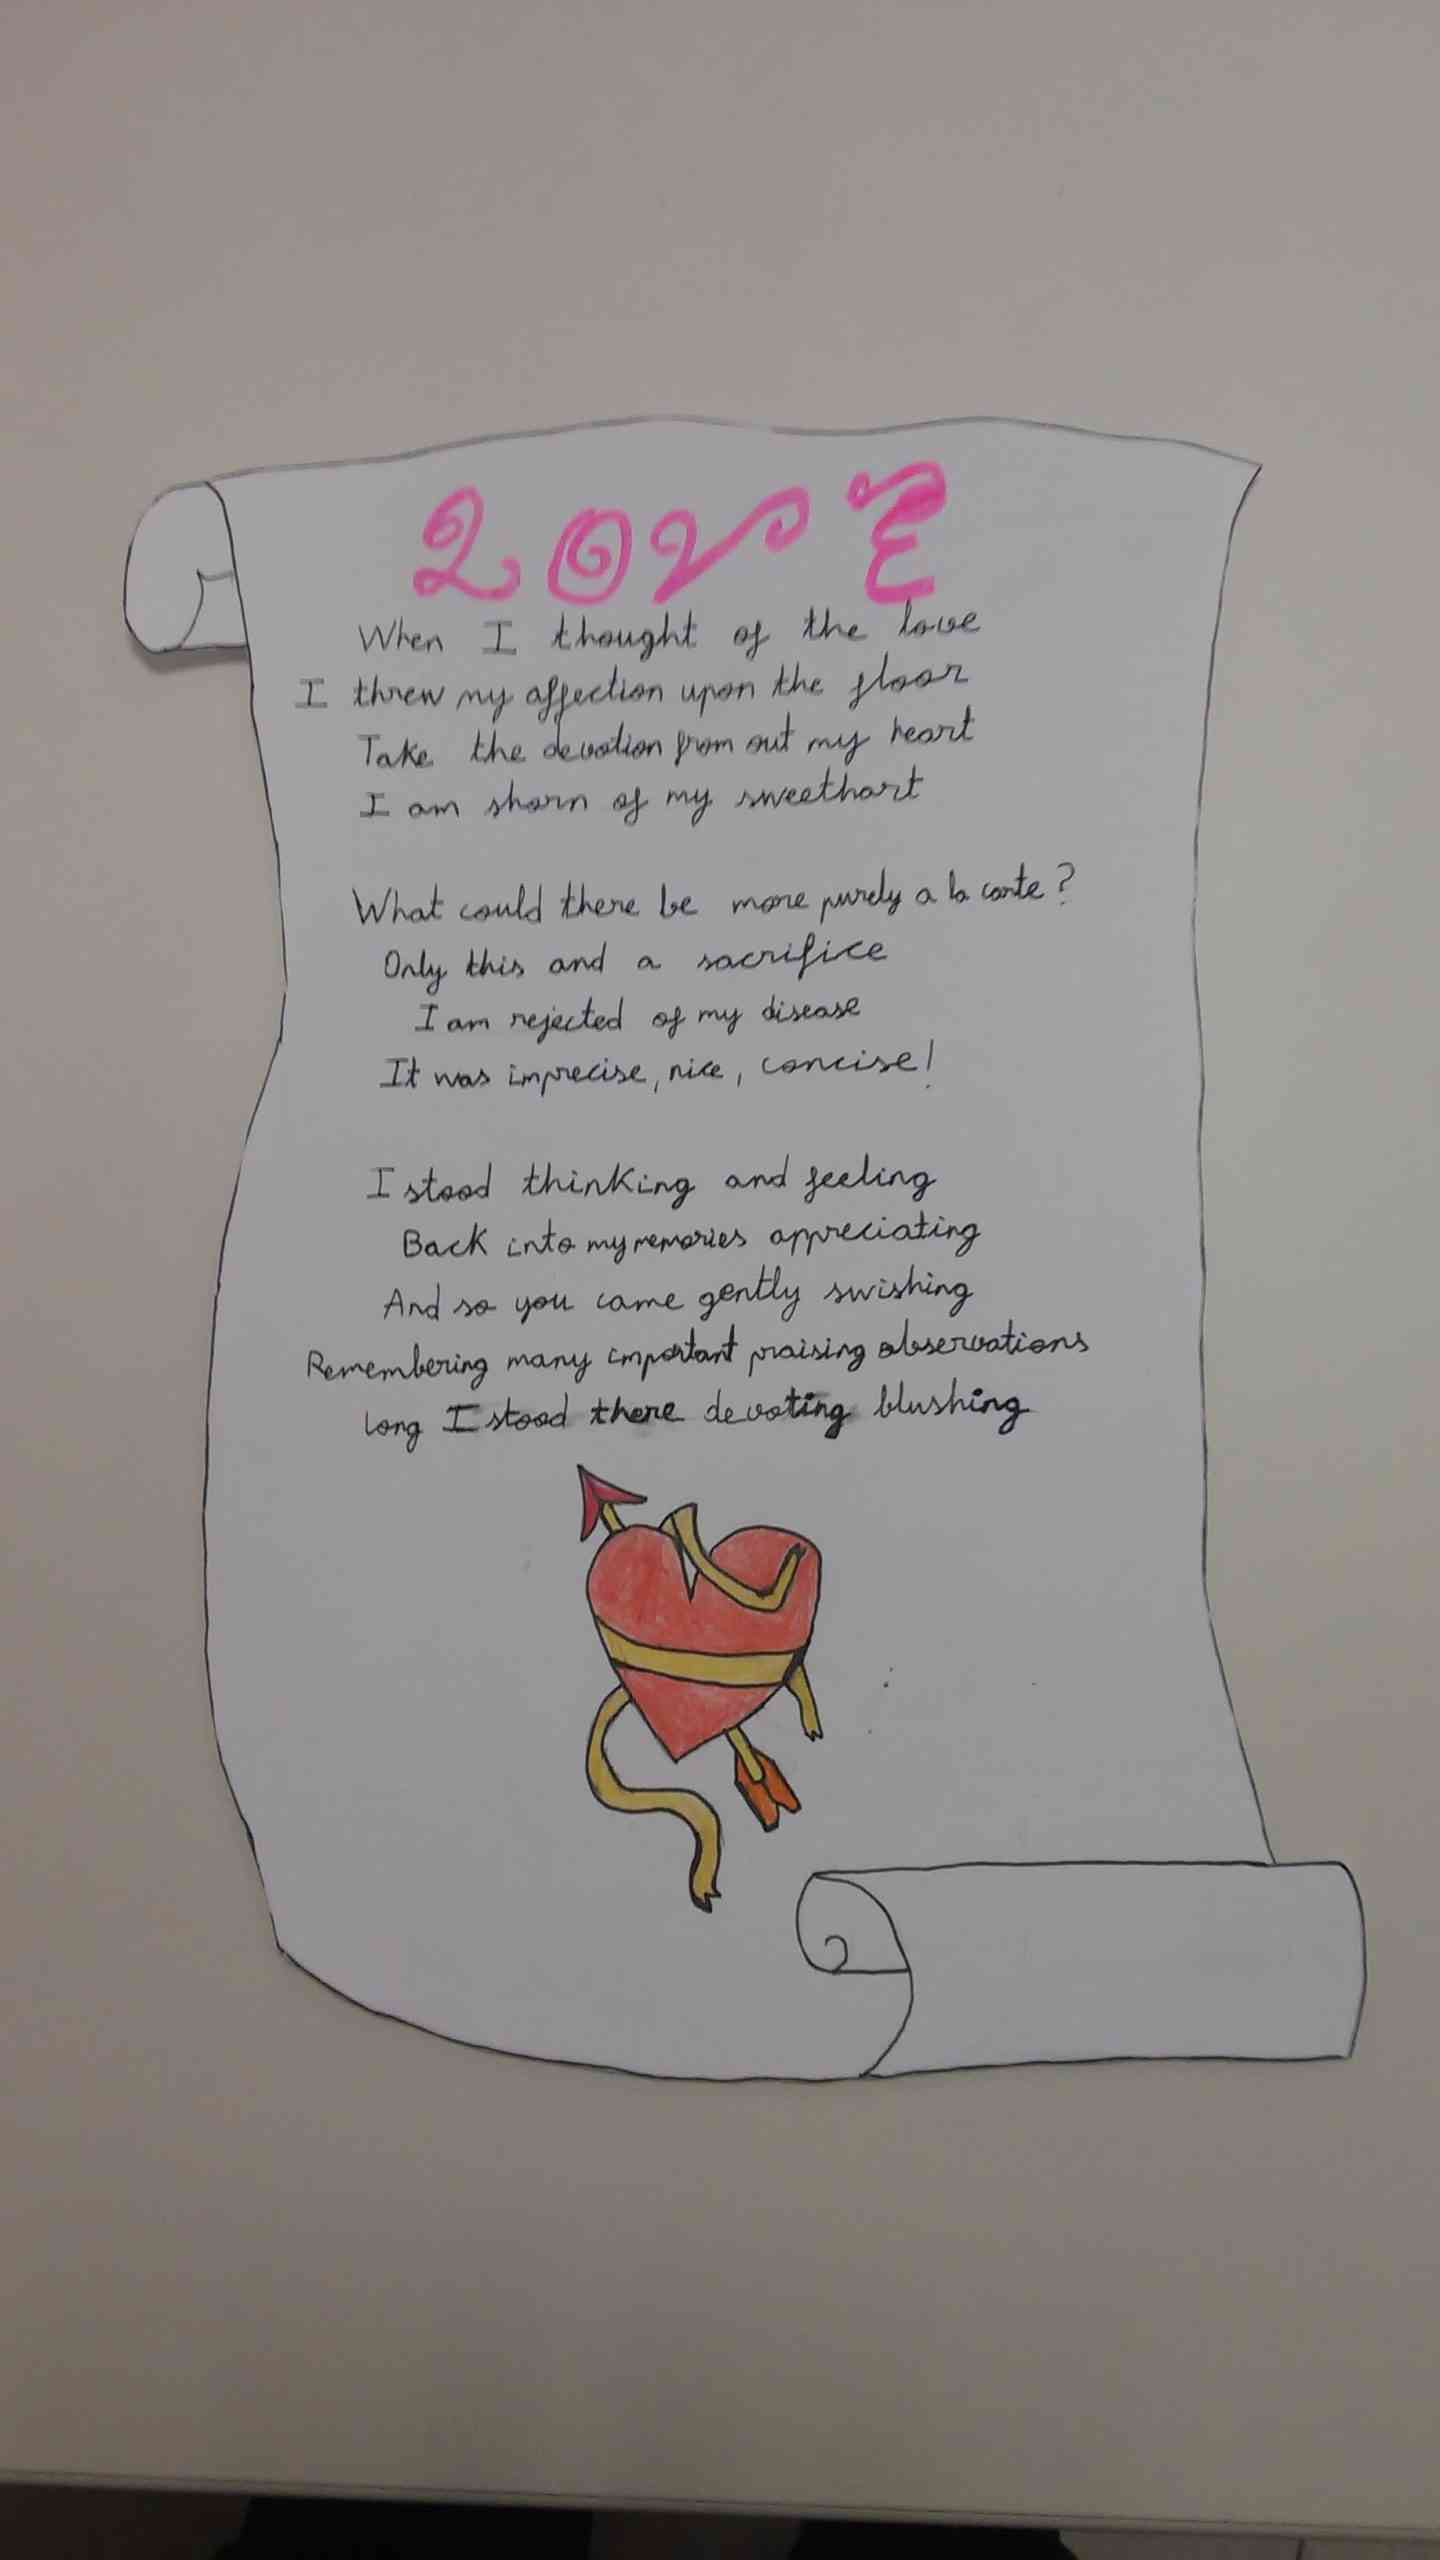 LOVE
When I thought of the love
I threw my affection upon the floor
Take the devotion from out my heart
I am shorn of my sweethart
What could there be more purely a la carte?
Only this and a sacrifice
I am rejected of my disease
It was imprecise, nice, concise!
I stood thinking and feeling
Back into my memories appreciating
And so you came gently swishing
Remembering many important praising observations
long I stood there devoting blushing